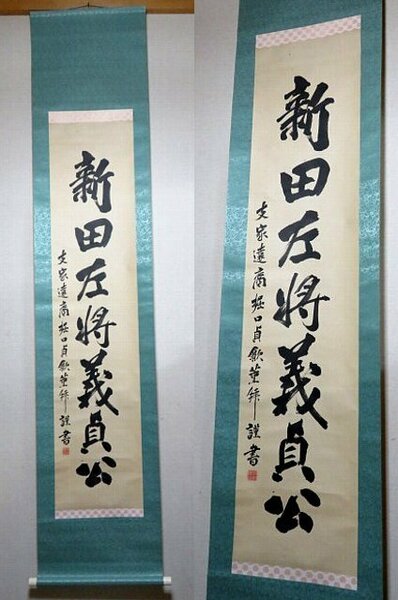 新田左将義貞公
支家遠裔堀口貞歙薫沐謹書
新田左将義貞公
支家遠裔堀口貞歙薫沐謹書